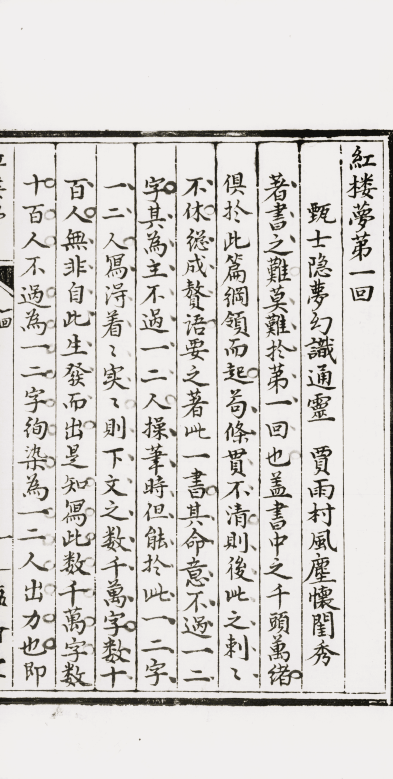 紅楼夢第一回
甄士隐夢幻識通靈 賈雨村風塵懷閨秀
著書之難莫難扵第一回也盖書中之千頭萬緒
俱扵此篇綱領而起苟條貫不清則後此之刺〻
不休縂成贅語要之著此一書其命意不過一二
字其為主不過一二人操筆時但能扵此一二字
一二人寫淂着〻実〻則下文之数千萬字数十
百人無非自此生發而出是知寫此数千萬字数
十百人不過為一二字徇染為一二人出力也即